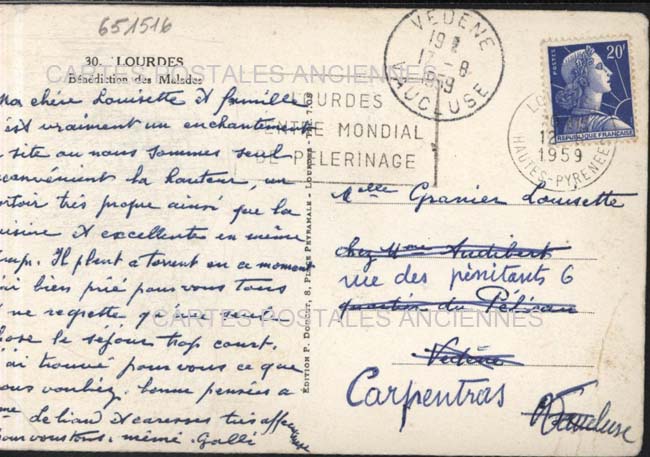 651516
30. LOURDES
Bénédiction des Malades
CARTES POSTALES ANCIENNES
VEDENE
19 H
17-8
1959
VAUCLUSE
LOURDES
CENTRE MONDIAL
DE PELERINAGE
POSTES
20F
REPUBLIQUE FRANÇAISE
12
1959
HAUTES-PYRENEES
Ma chère Louisette et famille
C'est vraiment un enchantement
site où nous sommes seul
inconvénient la hauteur, un
très propre ainsi que la
cuisine et excellente en même
temps. Il pleut a torrent en ce moment
J'ai bien prié pour vous tous
ne regrette qu'une seule
chose le séjour trop court.
J'ai trouvé pour vous ce que
vous vouliez. bonne pensées a
Me Deliand et caresses très affectueuses
pour vous tous. mémé. Galli
EDITION P. DOUCET, 8, PLACE PEYRAMALE - LOURDES
Melle Granier Louisette
chez Mme Audibert
rue des pénitants 6
quartier du
Vedène
Carpentras
Vaucluse
CARTES POSTALES ANCIENNES